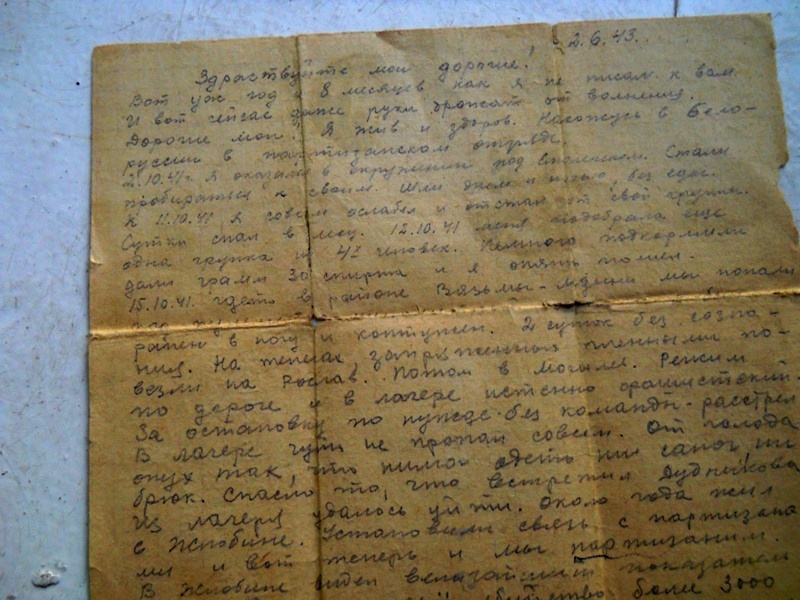 2.6.43.
Здраствуйте мои дорогие!
Вот уж год и 8 месяцев как я не писал к вам.
И вот сейчас даже руки дрожат от волнения.
Дорогие мои! Я жив и здоров. Нахожусь в Бело-
руссии в партизанском отряде.
2.10.41г. я оказался в окружении под Смоленском. Стали
пробираться к своим. Шли днем и ночью, без еды.
К 11.10.41 я совсем ослабел и отстал от свой группы.
Сутки спал в лесу. 12.10.41 меня подобрала еще
одна группа из человек. Немного подкормили
дали грамм 30 спирта и я опять пошел.
15.10.41. где-то в районе Вязьмы- мы попали
ранен в ногу и контужен. 2 суток без созна-
ния. На телегах, запряженных пленными по-
везли на Рославль. Потом в Могилев. Режим
по дороге и в лагере истенно фашистский.
За остановку по нужде без команды- расстрел
В лагере чуть не пропал совсем. От голода
опух так, что нимог одеть ни сапог ни
брюк. Спасло то, что встретил Дудникова
Из лагеря удалось уйти. Около года жил
в Жлобине. Установили связь с партизана
ми и вот теперь и мы партизаним.
В Жлобине виден показателем
убийство более 3000